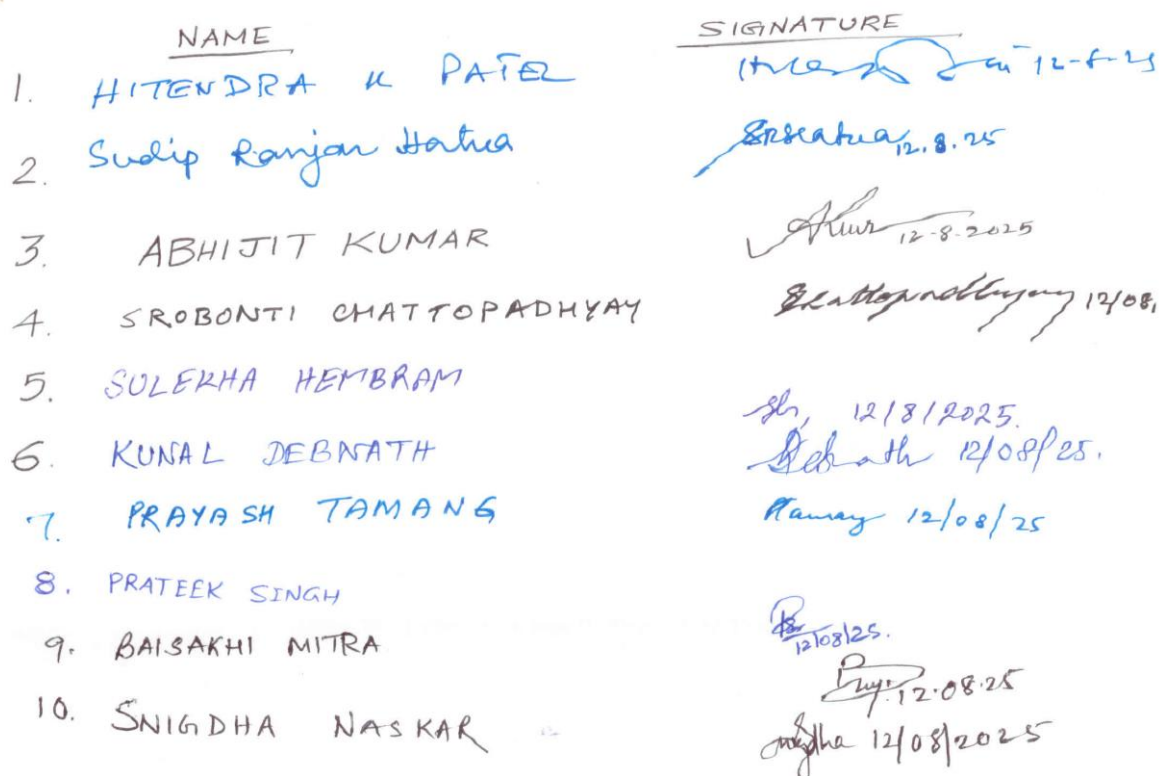 NAME SIGNATURE
1. HITENDRA K PATEL 12-8-25
2. Sudip Ranjan Hatua 12.8.25
3. ABHIJIT KUMAR 12-8-2025
4. SROBONTI CHATTOPADHYAY SChattopadhyay 12/08,
5. SULEKHA HEMBRAM 12/8/2025.
6. KUNAL DEBNATH Debnath 12/08/25.
7. PRAYASH TAMANG 12/08/25
8. PRATEEK SINGH 12/08/25.
9. BAISAKHI MITRA 12.08.25
10. SNIGDHA NASKAR Snigdha 12/08/2025